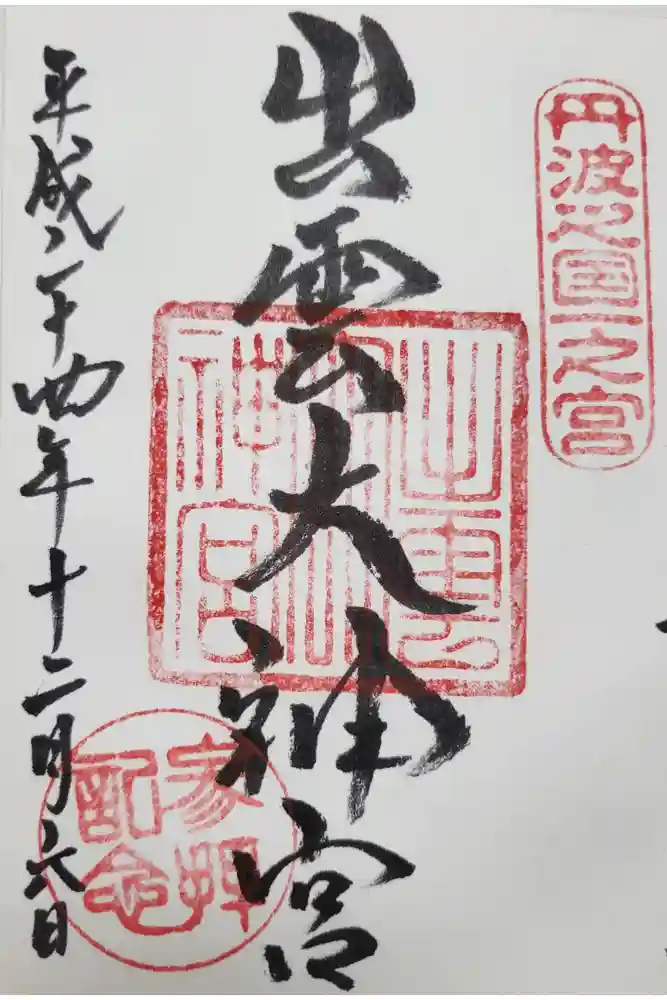 丹波之国一之宮
出雲大神宮
出雲大神宮
参拝記念
平成二十四年十二月六日